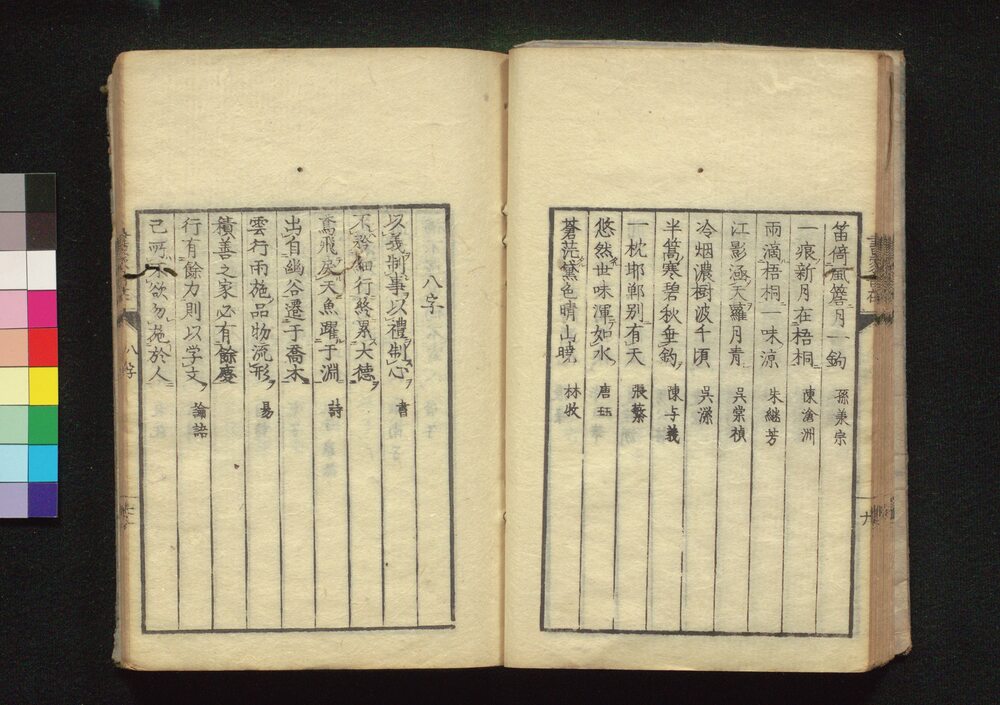 笛倚風簷月一鉤 孫兼宗
一痕新月在梧桐 陳滄洲
雨滴梧桐一味涼 朱継芳
江影涵天蘿月青 呉崇禎
冷烟濃樹波千頃 呉濴
半篙寒碧秋垂釣 陳与義
一枕邯鄲别有天 張蓁
悠然世味渾如水 唐珏
蒼茫黛色晴山暁 林收
八字
以義制事以禮制心 書
不矜細行終累大徳
鳶飛戻天魚躍于淵 詩
出自幽谷遷于喬木
雲行雨施品物流形 易
積善之家必有餘慶
行有餘力則以学文 論語
己所不欲勿施於人
八字